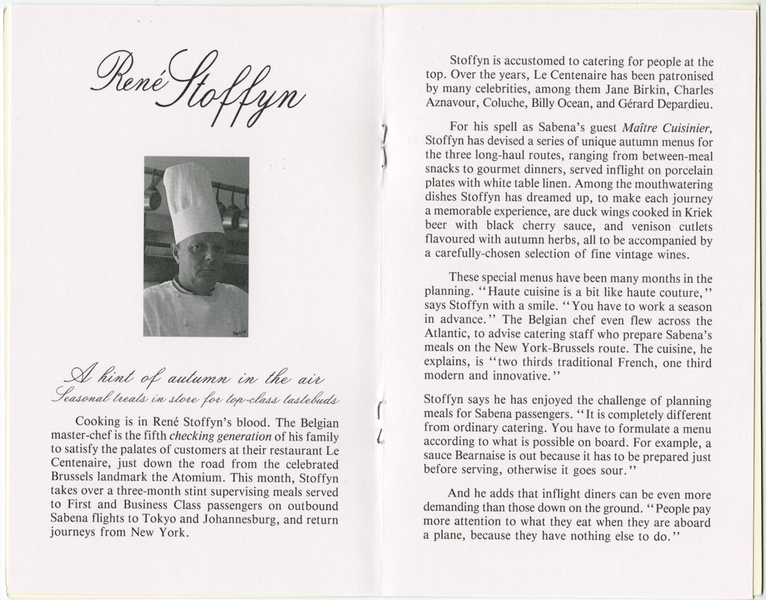 René Stoffyn
A hint of autumn in the air
Seasonal treats in store for top-class tastebuds
Cooking is in René Stoffyn's blood. The Belgian
master-chef is the fifth checking generation of his family
to satisfy the palates of customers at their restaurant Le
Centenaire, just down the road from the celebrated
Brussels landmark the Atomium. This month, Stoffyn
takes over a three-month stint supervising meals served
to First and Business Class passengers on outbound
Sabena flights to Tokyo and Johannesburg, and return
journeys from New York.
Stoffyn is accustomed to catering for people at the
top. Over the years, Le Centenaire has been patronised
by many celebrities, among them Jane Birkin, Charles
Aznavour, Coluche, Billy Ocean, and Gérard Depardieu.
For his spell as Sabena's guest Maître Cuisinier,
Stoffyn has devised a series of unique autumn menus for
the three long-haul routes, ranging from between-meal
snacks to gourmet dinners, served inflight on porcelain
plates with white table linen. Among the mouthwatering
dishes Stoffyn has dreamed up, to make each journey
a memorable experience, are duck wings cooked in Kriek
beer with black cherry sauce, and venison cutlets
flavoured with autumn herbs, all to be accompanied by
a carefully-chosen selection of fine vintage wines.
These special menus have been many months in the
planning. "Haute cuisine is a bit like haute couture,"
says Stoffyn with a smile. "You have to work a season
in advance." The Belgian chef even flew across the
Atlantic, to advise catering staff who prepare Sabena's
meals on the New York-Brussels route. The cuisine, he
explains, is "two thirds traditional French, one third
modern and innovative."
Stoffyn says he has enjoyed the challenge of planning
meals for Sabena passengers. "It is completely different
from ordinary catering. You have to formulate a menu
according to what is possible on board. For example, a
sauce Bearnaise is out because it has to be prepared just
before serving, otherwise it goes sour."
And he adds that inflight diners can be even more
demanding than those down on the ground. "People pay
more attention to what they eat when they are aboard
a plane, because they have nothing else to do."